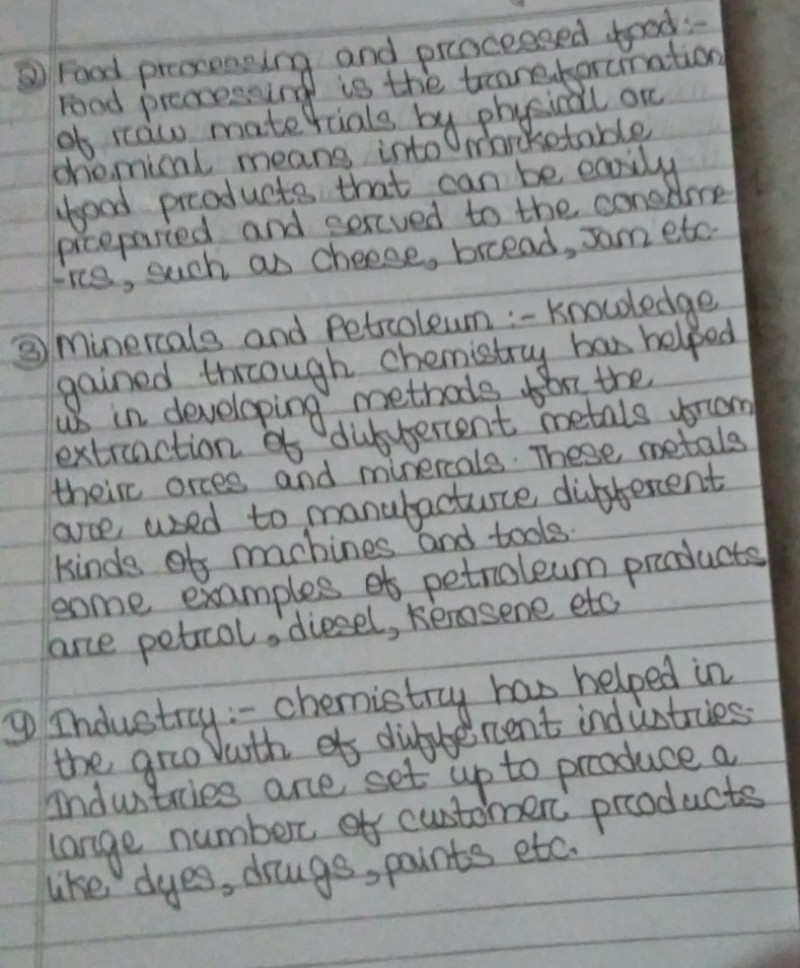 ② Food processing and processed food:-
Food processing is the transformation
of raw materials by physical or
chemical means into marketable
food products that can be easily
prepared and served to the consume
-rs, such as cheese, bread, Jam etc.
③ Minerals and Petroleum :- Knowledge
gained through chemistry has helped
us in developing methods for the
extraction of different metals from
their ores and minerals. These metals
are used to manufacture different
kinds of machines and tools.
some examples of petroleum products
are petrol, diesel, kerosene etc
④ Industry:- chemistry has helped in
the growth of different industries.
Industries are set up to produce a
large number of customer products
like dyes, drugs, paints etc.